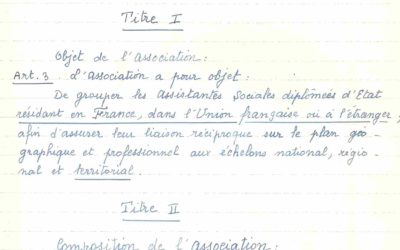 Titre I
Objet de l'Association :
Art. 3 . L'Association a pour objet :
De grouper les Assistantes Sociales diplômées d'Etat
résidant en France, dans l'Union française ou à l'étranger,
afin d'assurer leur liaison réciproque sur le plan géo-
graphique et professionnel aux échelons national, régio-
nal et territorial.
Titre II
Composition de l'Association :